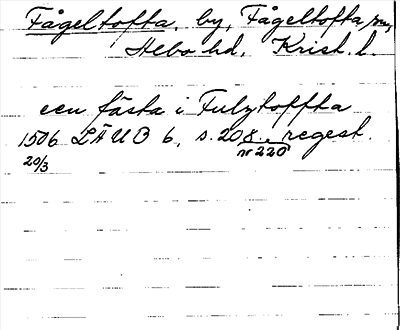 Fågeltofta, by, Fågeltofta sn,
Albo hd, Krist. l.
een fästa i Fulztoffta
1506 LÄUB 6, s. 208. regest.
20/3 nr 220